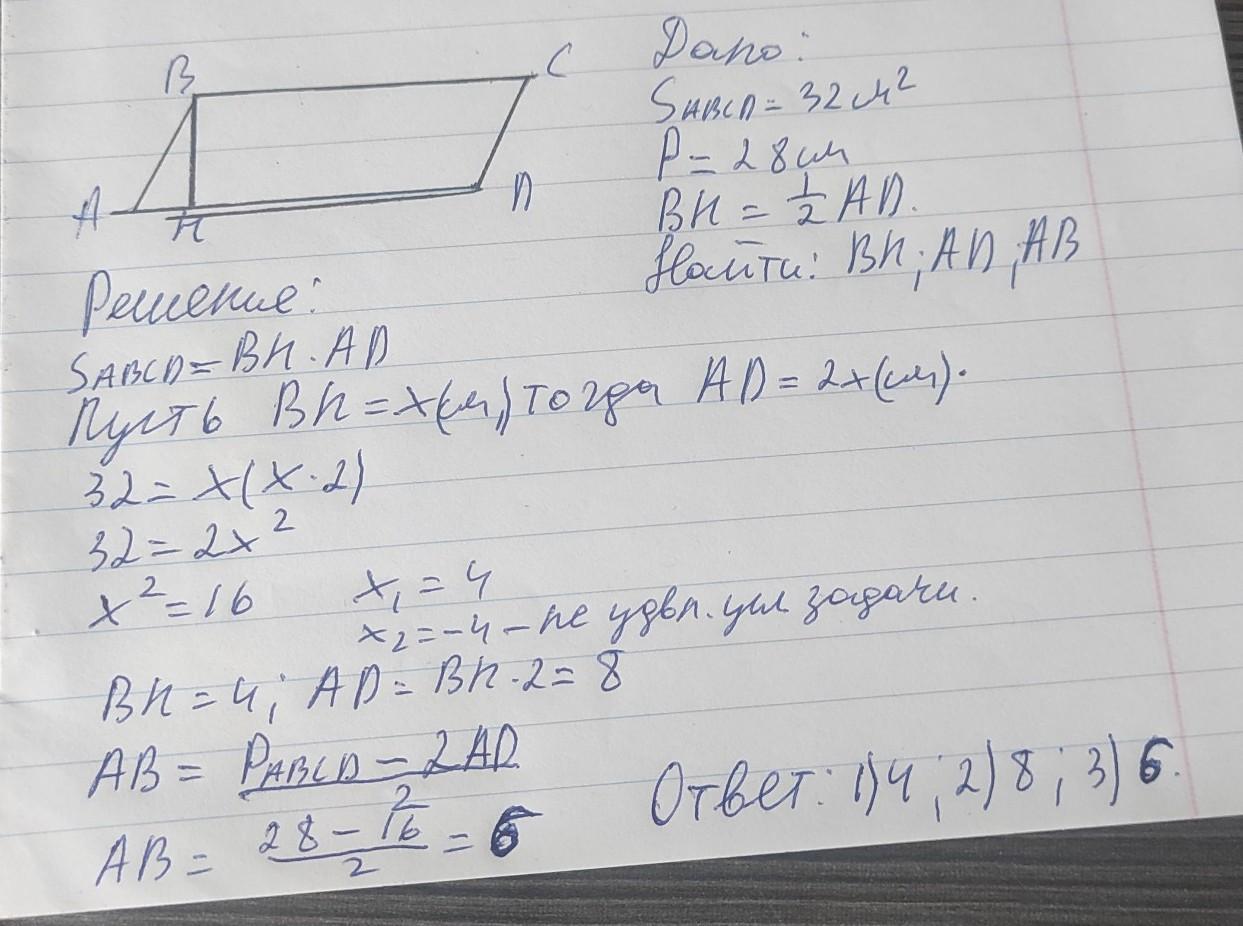 B
C
A
H
D
Дано:
SABCD = 32 см²
P = 28 см
BH = 1/2 AD.
Найти: BH; AD; AB
Решение:
SABCD = BH · AD
Пусть BH = x(см,) тогда AD = 2x(см).
32 = x(x · 2)
32 = 2x²
x² = 16
x₁ = 4
x₂ = -4 – не удвл. усл задачи.
BH = 4; AD = BH · 2 = 8
AB = (PABCD - 2AD)/2
AB = (28 - 16)/2 = 6
Ответ: 1)4; 2)8; 3)6.